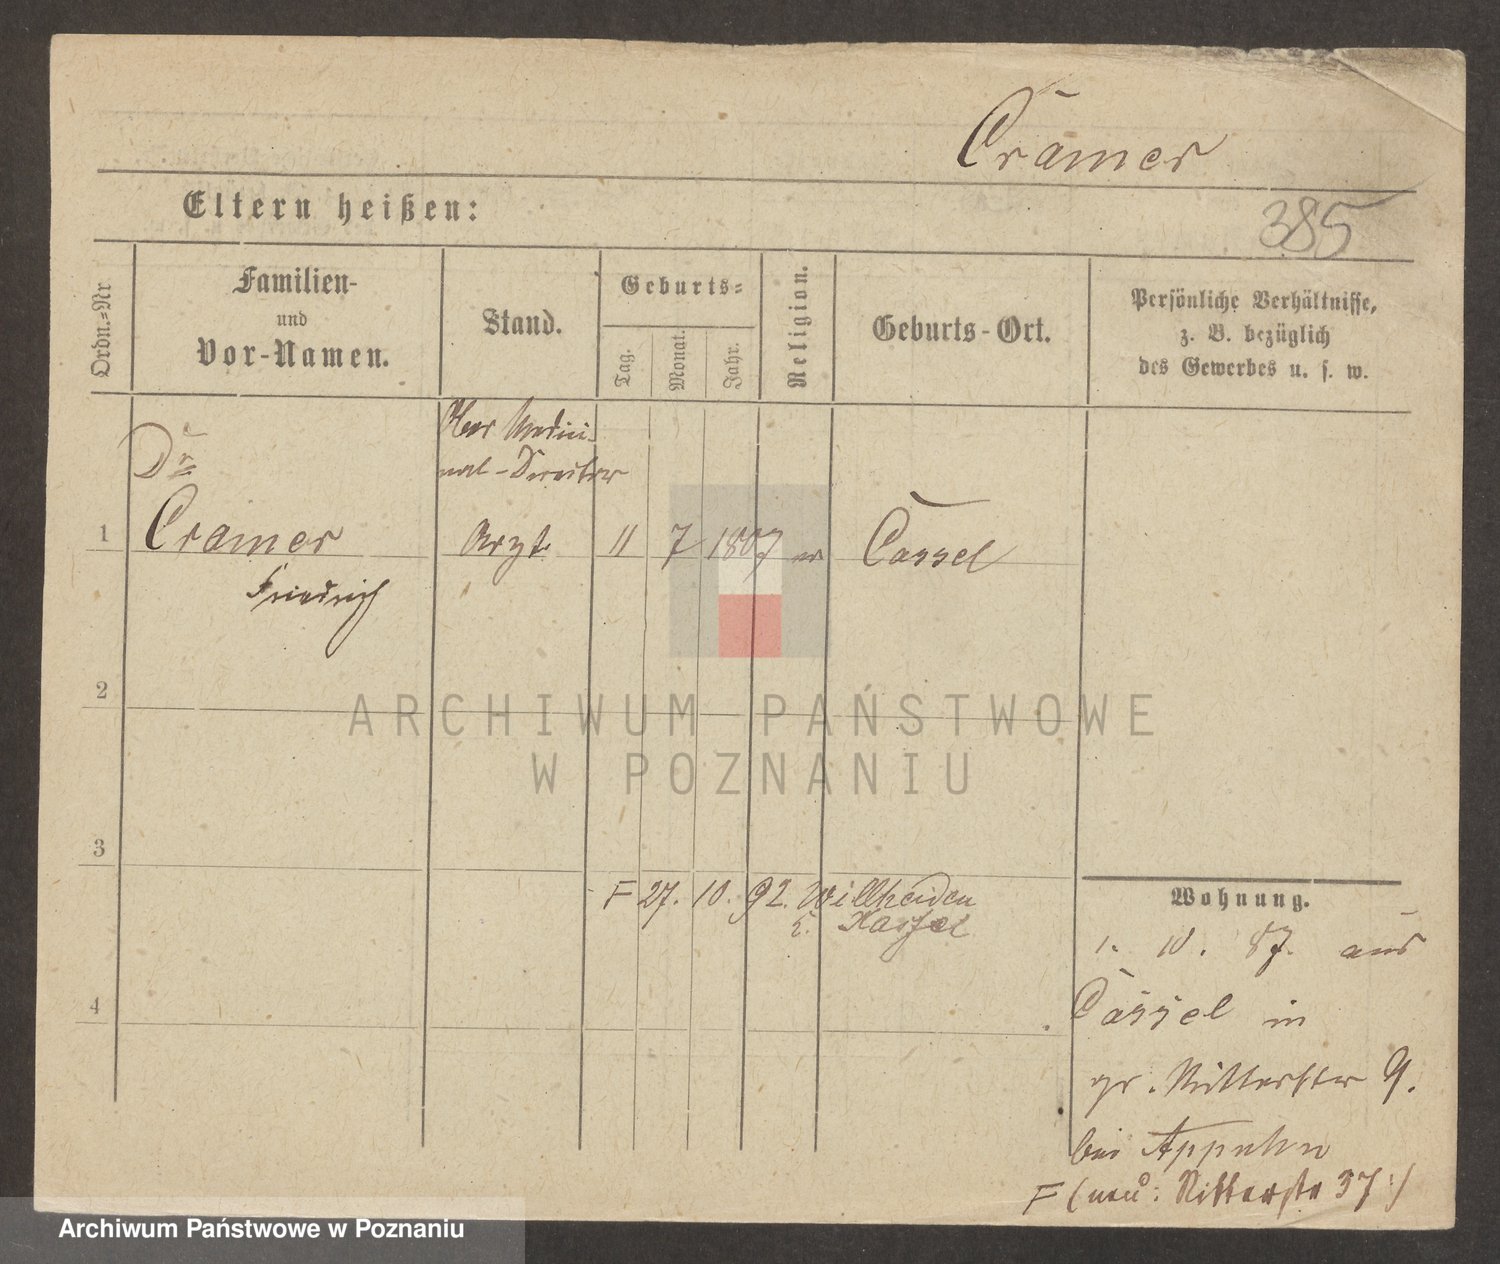 Cramer
Eltern heißen:
385
Ordn.=Nr
Familien-
und
Vor-Namen.
Stand.
Geburts=
Tag.
Monat.
Jahr.
Religion.
Geburts-Ort.
Persönliche Verhältnisse,
z. B. bezüglich
des Gewerbes u. s. w.
Dr
Ober Medici
nal-Director
1 Cramer Arzt 11 7 1807 Cassel
Friedrich
2
ARCHIWUM PAŃSTWOWE
W POZNANIU
3
F 27. 10. 92. Willheiden
Kassel
Wohnung.
1. 10. 87. aus
Cassel in
gr. Ritterstr 9.
bei Appuhn
F (neu: Ritterstr 37:)
4
Archiwum Państwowe w Poznaniu